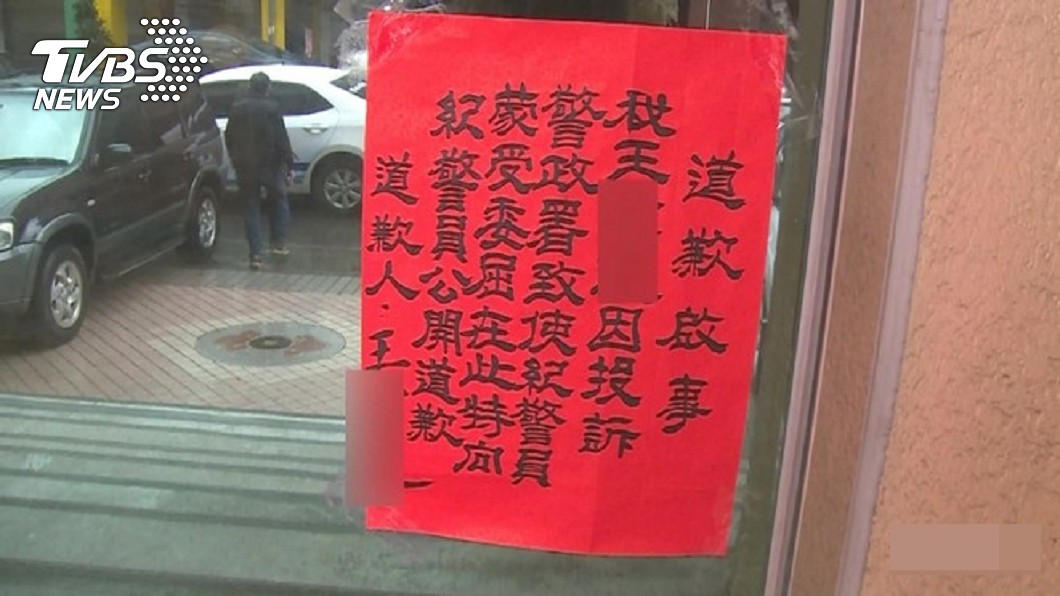 TVBS
NEWS
道歉啟事
我王因投訴
警政署致使紀警員
蒙受委屈在此特向
紀警員公開道歉
道歉人:王